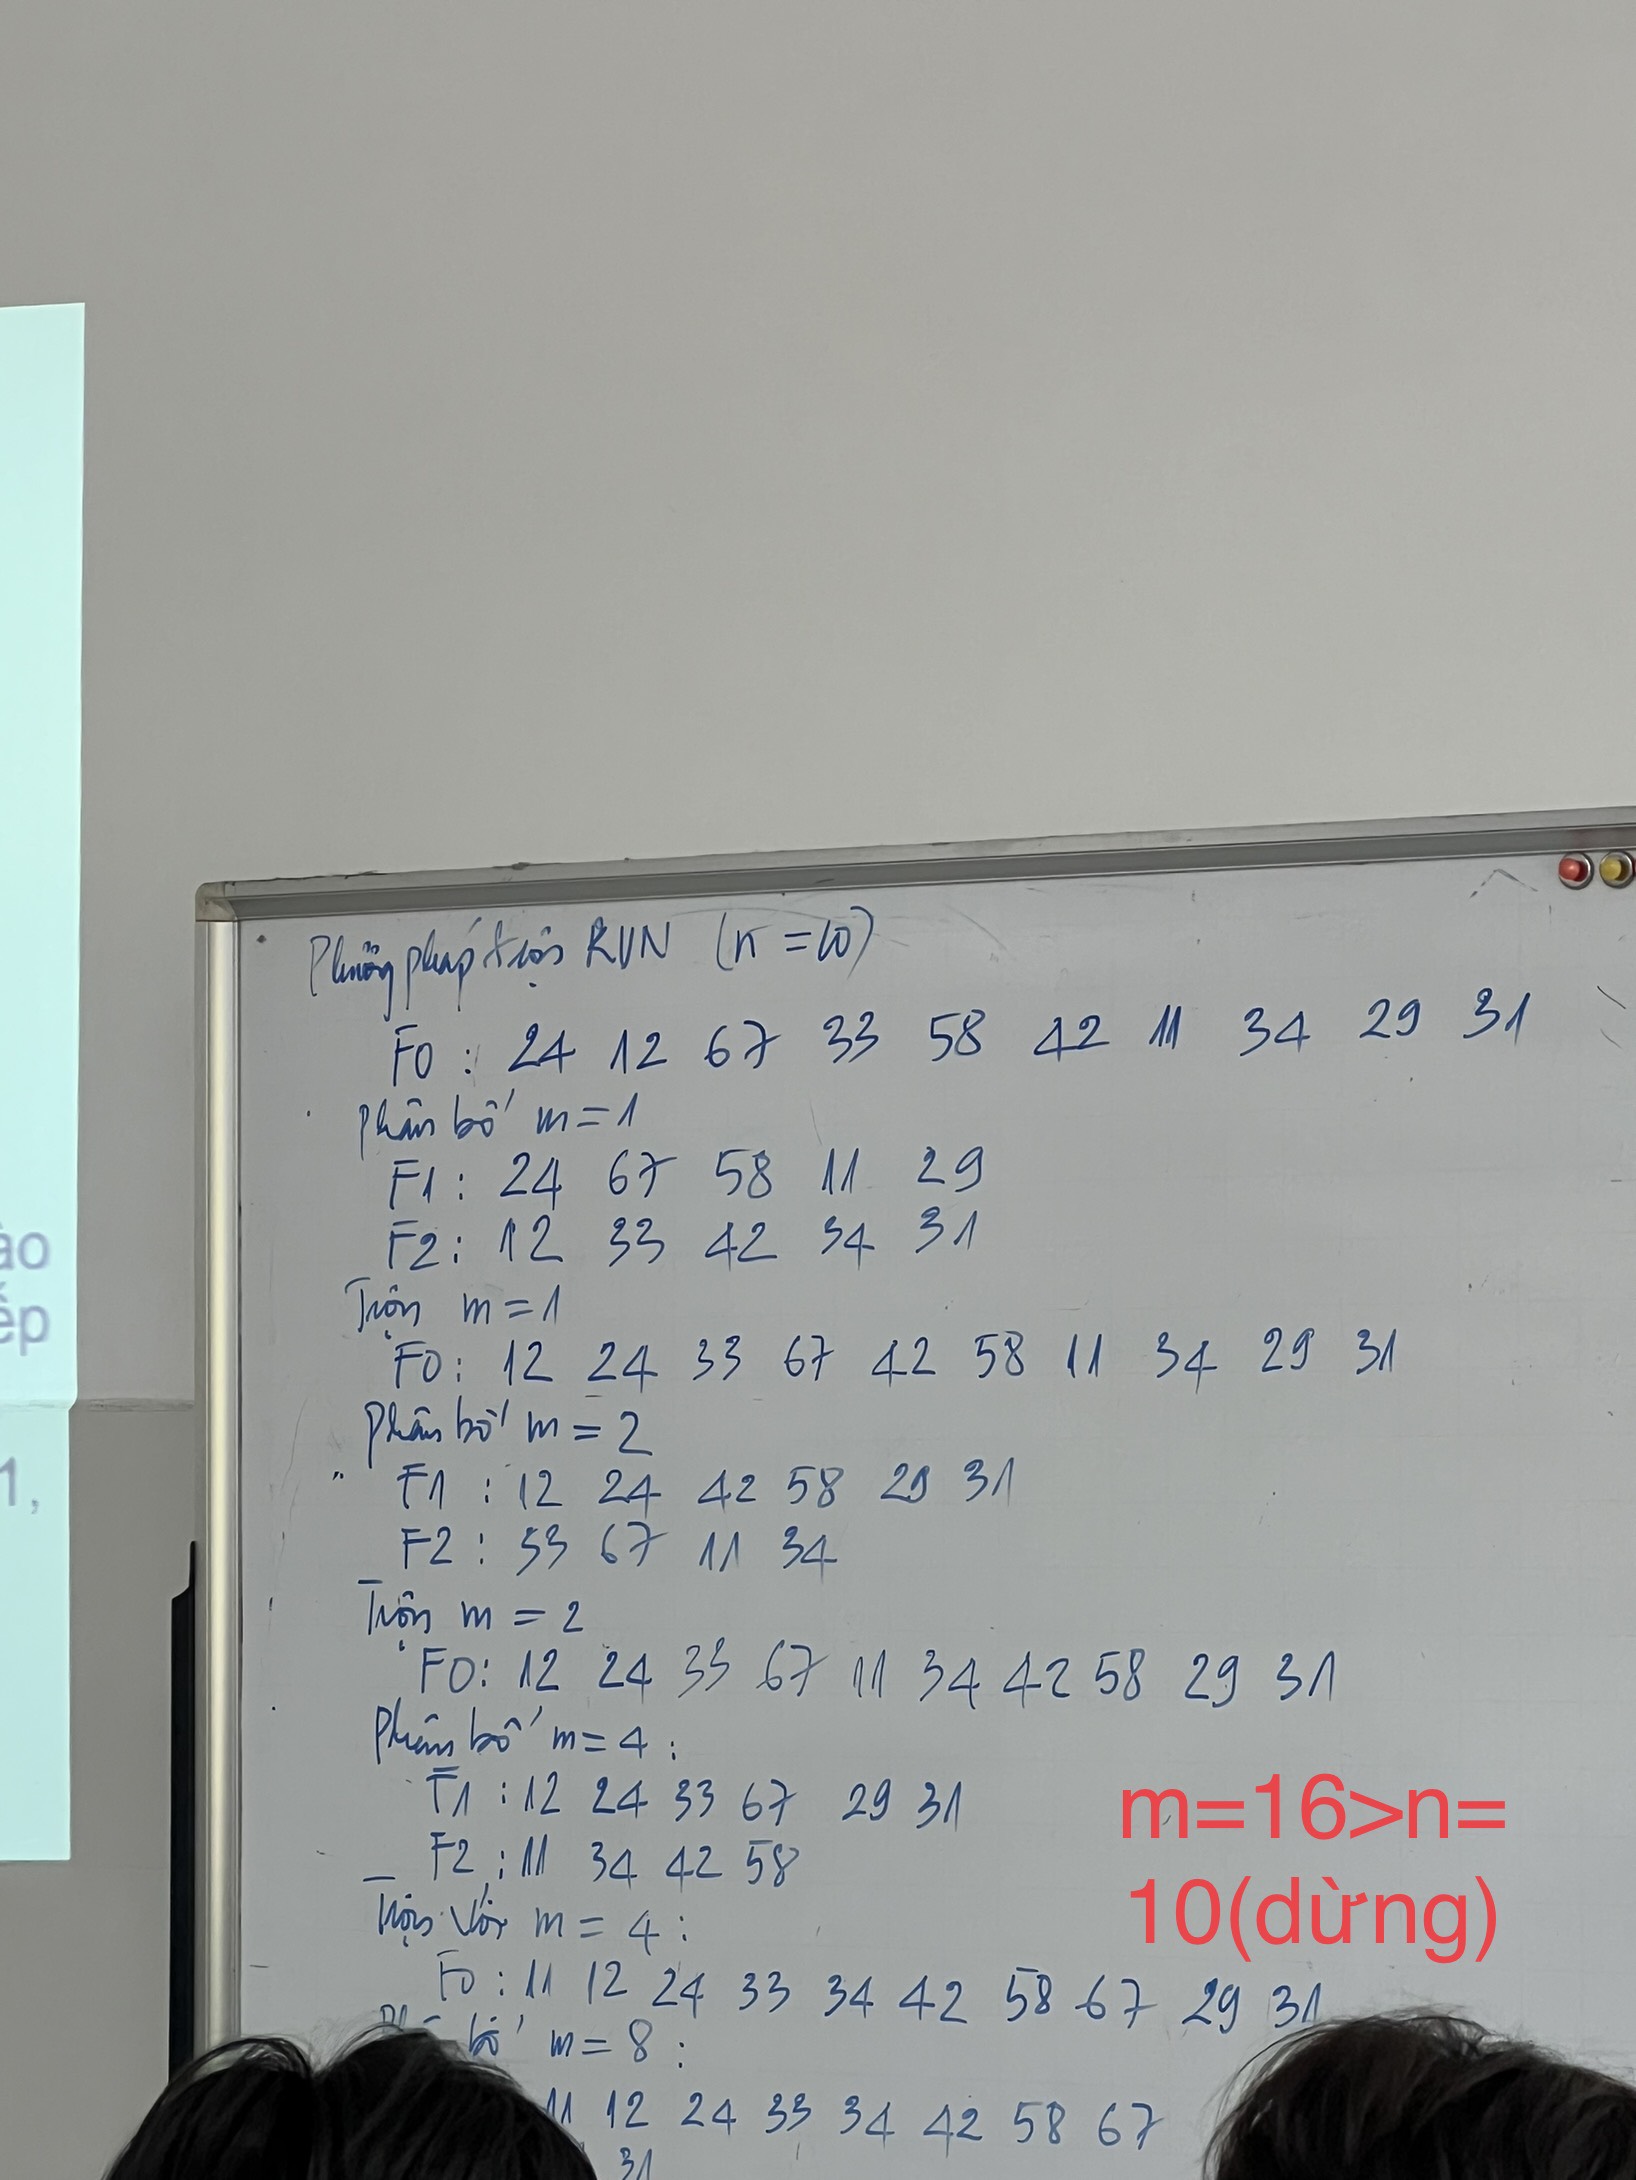 ào
ếp
1,
Phương pháp trộn RUN (n = 10)
F0 : 24 12 67 33 58 42 11 34 29 31
Phân bố m = 1
F1 : 24 67 58 11 29
F2 : 12 33 42 34 31
Trộn m = 1
F0 : 12 24 33 67 42 58 11 34 29 31
Phân bố m = 2
F1 : 12 24 42 58 29 31
F2 : 33 67 11 34
Trộn m = 2
F0 : 12 24 33 67 11 34 42 58 29 31
Phân bố m = 4 :
F1 : 12 24 33 67 29 31
F2 : 11 34 42 58
Trộn với m = 4 :
F0 : 11 12 24 33 34 42 58 67 29 31
bố m = 8 :
11 12 24 33 34 42 58 67
31
m=16>n=
10(dừng)